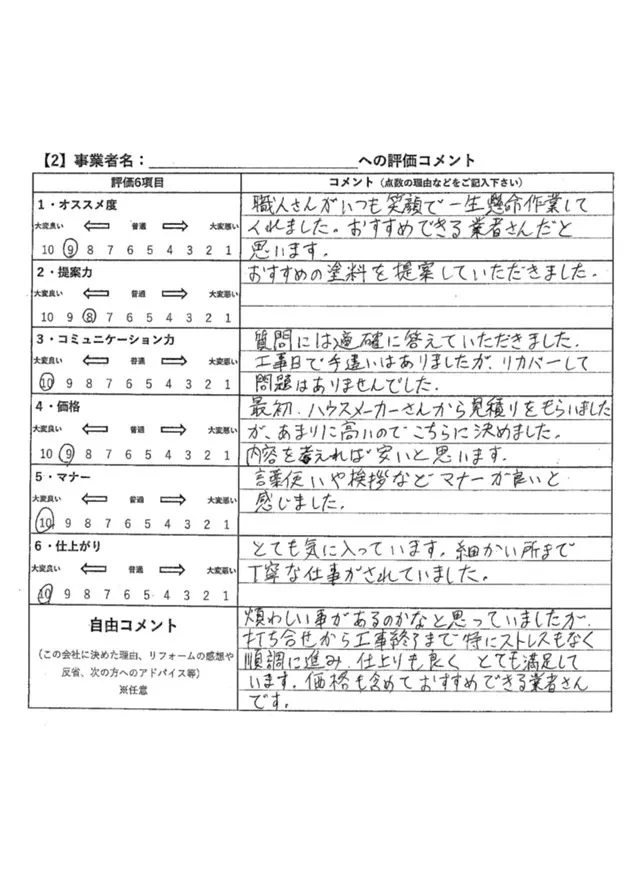 【2】事業者名：への評価コメント
評価6項目
コメント（点数の理由などをご記入下さい）
1・オススメ度
大変良い 普通 大変悪い
10 9 8 7 6 5 4 3 2 1
職人さんがいつも笑顔で一生懸命作業して
くれました。おすすめできる業者さんだと
思います。
2・提案力
大変良い 普通 大変悪い
10 9 8 7 6 5 4 3 2 1
おすすめの塗料を提案していただきました。
3・コミュニケーション力
大変良い 普通 大変悪い
10 9 8 7 6 5 4 3 2 1
質問には適確に答えていただきました。
工事日で手違いはありましたが、リカバーして
問題はありませんでした。
4・価格
大変良い 普通 大変悪い
10 9 8 7 6 5 4 3 2 1
最初、ハウスメーカーさんから見積りをもらいました
が、あまりに高いのでこちらに決めました。
内容を考えれば安いと思います。
5・マナー
大変良い 普通 大変悪い
10 9 8 7 6 5 4 3 2 1
言葉使いや挨拶などマナーが良いと
感じました。
6・仕上がり
大変良い 普通 大変悪い
10 9 8 7 6 5 4 3 2 1
とても気に入っています。細かい所まで
丁寧な仕事がされていました。
自由コメント
（この会社に決めた理由、リフォームの感想や
反省、次の方へのアドバイス等）
※任意
煩わしい事があるのかなと思っていましたが、
打ち合せから工事終了まで特にストレスもなく
順調に進み、仕上りも良く とても満足して
います。価格も含めておすすめできる業者さん
です。